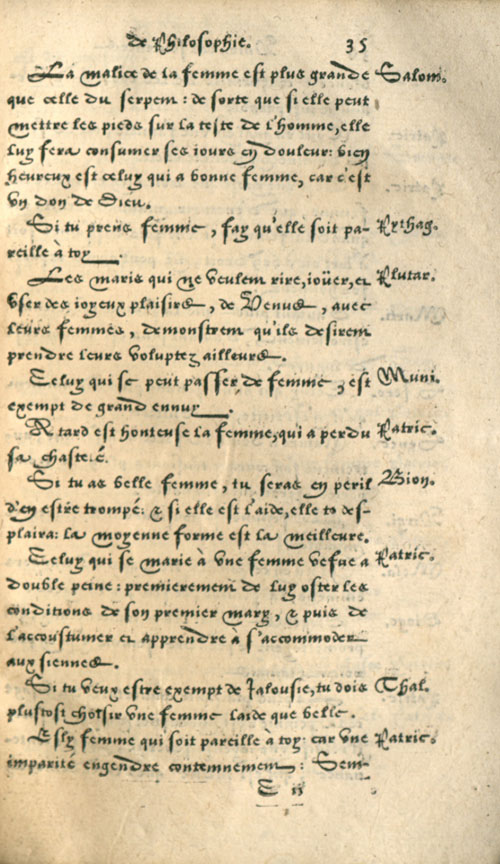 de Philosophie. 35
La malice de la femme est plus grande Salom.
que celle du serpent : de sorte que si elle peut
mettre les pieds sur la teste de l'homme, elle
luy fera consumer ses iours en douleur : bien
heureux est celuy qui a bonne femme, car c'est
vn don de Dieu.
Si tu prens femme, fay qu'elle soit pa- Pythag.
reille à toy.
Les maris qui ne veulent rire, ioüer, et Plutar.
vser des ioyeux plaisirs, de Venus, avec
leurs femmes, demonstrent qu'ils desirent
prendre leurs voluptez ailleurs.
Celuy qui se peut passer de femme, est Muni.
exempt de grand ennuy.
A tard est honteuse la femme, qui a perdu Patric.
sa chasteté.
Si tu as belle femme, tu seras en peril Bion.
d'en estre trompé : & si elle est laide, elle te des-
plaira : la moyenne forme est la meilleure.
Celuy qui se marie à vne femme vefue a Patric.
double peine : premierement de luy oster les
conditions de son premier mary, & puis de
l'accoustumer et apprendre a s'accommoder
aux siennes.
Si tu veux estre exempt de Jalousie, tu dois Thal.
plustost choisir vne femme laide que belle.
Esly femme qui soit pareille à toy car vne Patric.
imparité engendre contemnement : Sem-
E ii